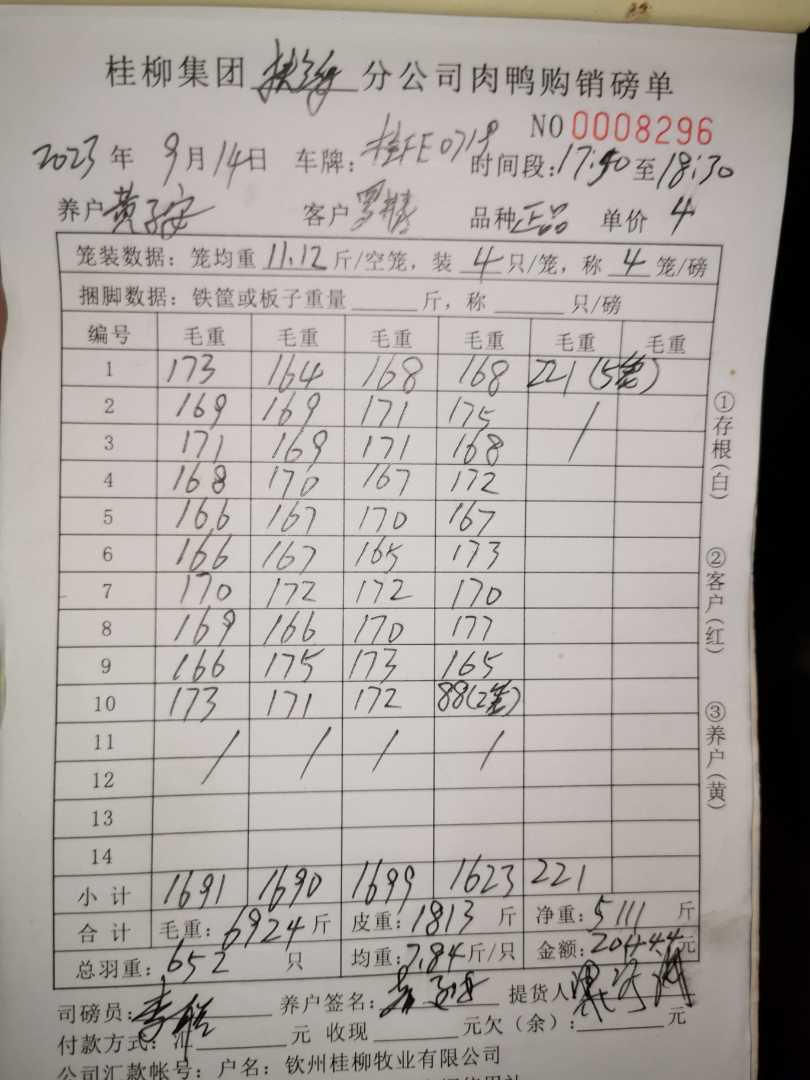 桂柳集团 分公司肉鸭购销磅单
NO 0008296
2023年 9月14日 车牌:桂FE0719 时间段:17:50至18:30
养户 黄子安 客户 罗 品种 正品 单价 4
笼装数据:笼均重 11.12 斤/空笼,装 4 只/笼,称 4 笼/磅
捆脚数据:铁筐或板子重量 斤,称 只/磅
编号 毛重 毛重 毛重 毛重 毛重 毛重
1 173 164 168 168 221(5笼)
2 169 169 171 175 /
3 171 169 171 168
4 168 170 167 172
5 166 167 170 167
6 166 167 165 173
7 170 172 172 170
8 169 166 170 177
9 166 175 173 165
10 173 171 172 88(2笼)
11 / / / /
12
13
14
小计 1691 1690 1699 1623 221
合计 毛重:6924斤 皮重:1813斤 净重:5111斤
总羽重:652只 均重:7.84斤/只 金额:20444元
司磅员: 养户签名: 提货人
付款方式:汇 元 收现 元欠(余): 元
公司汇款帐号:户名:钦州桂柳牧业有限公司
①存根(白)
②客户(红)
③养户(黄)